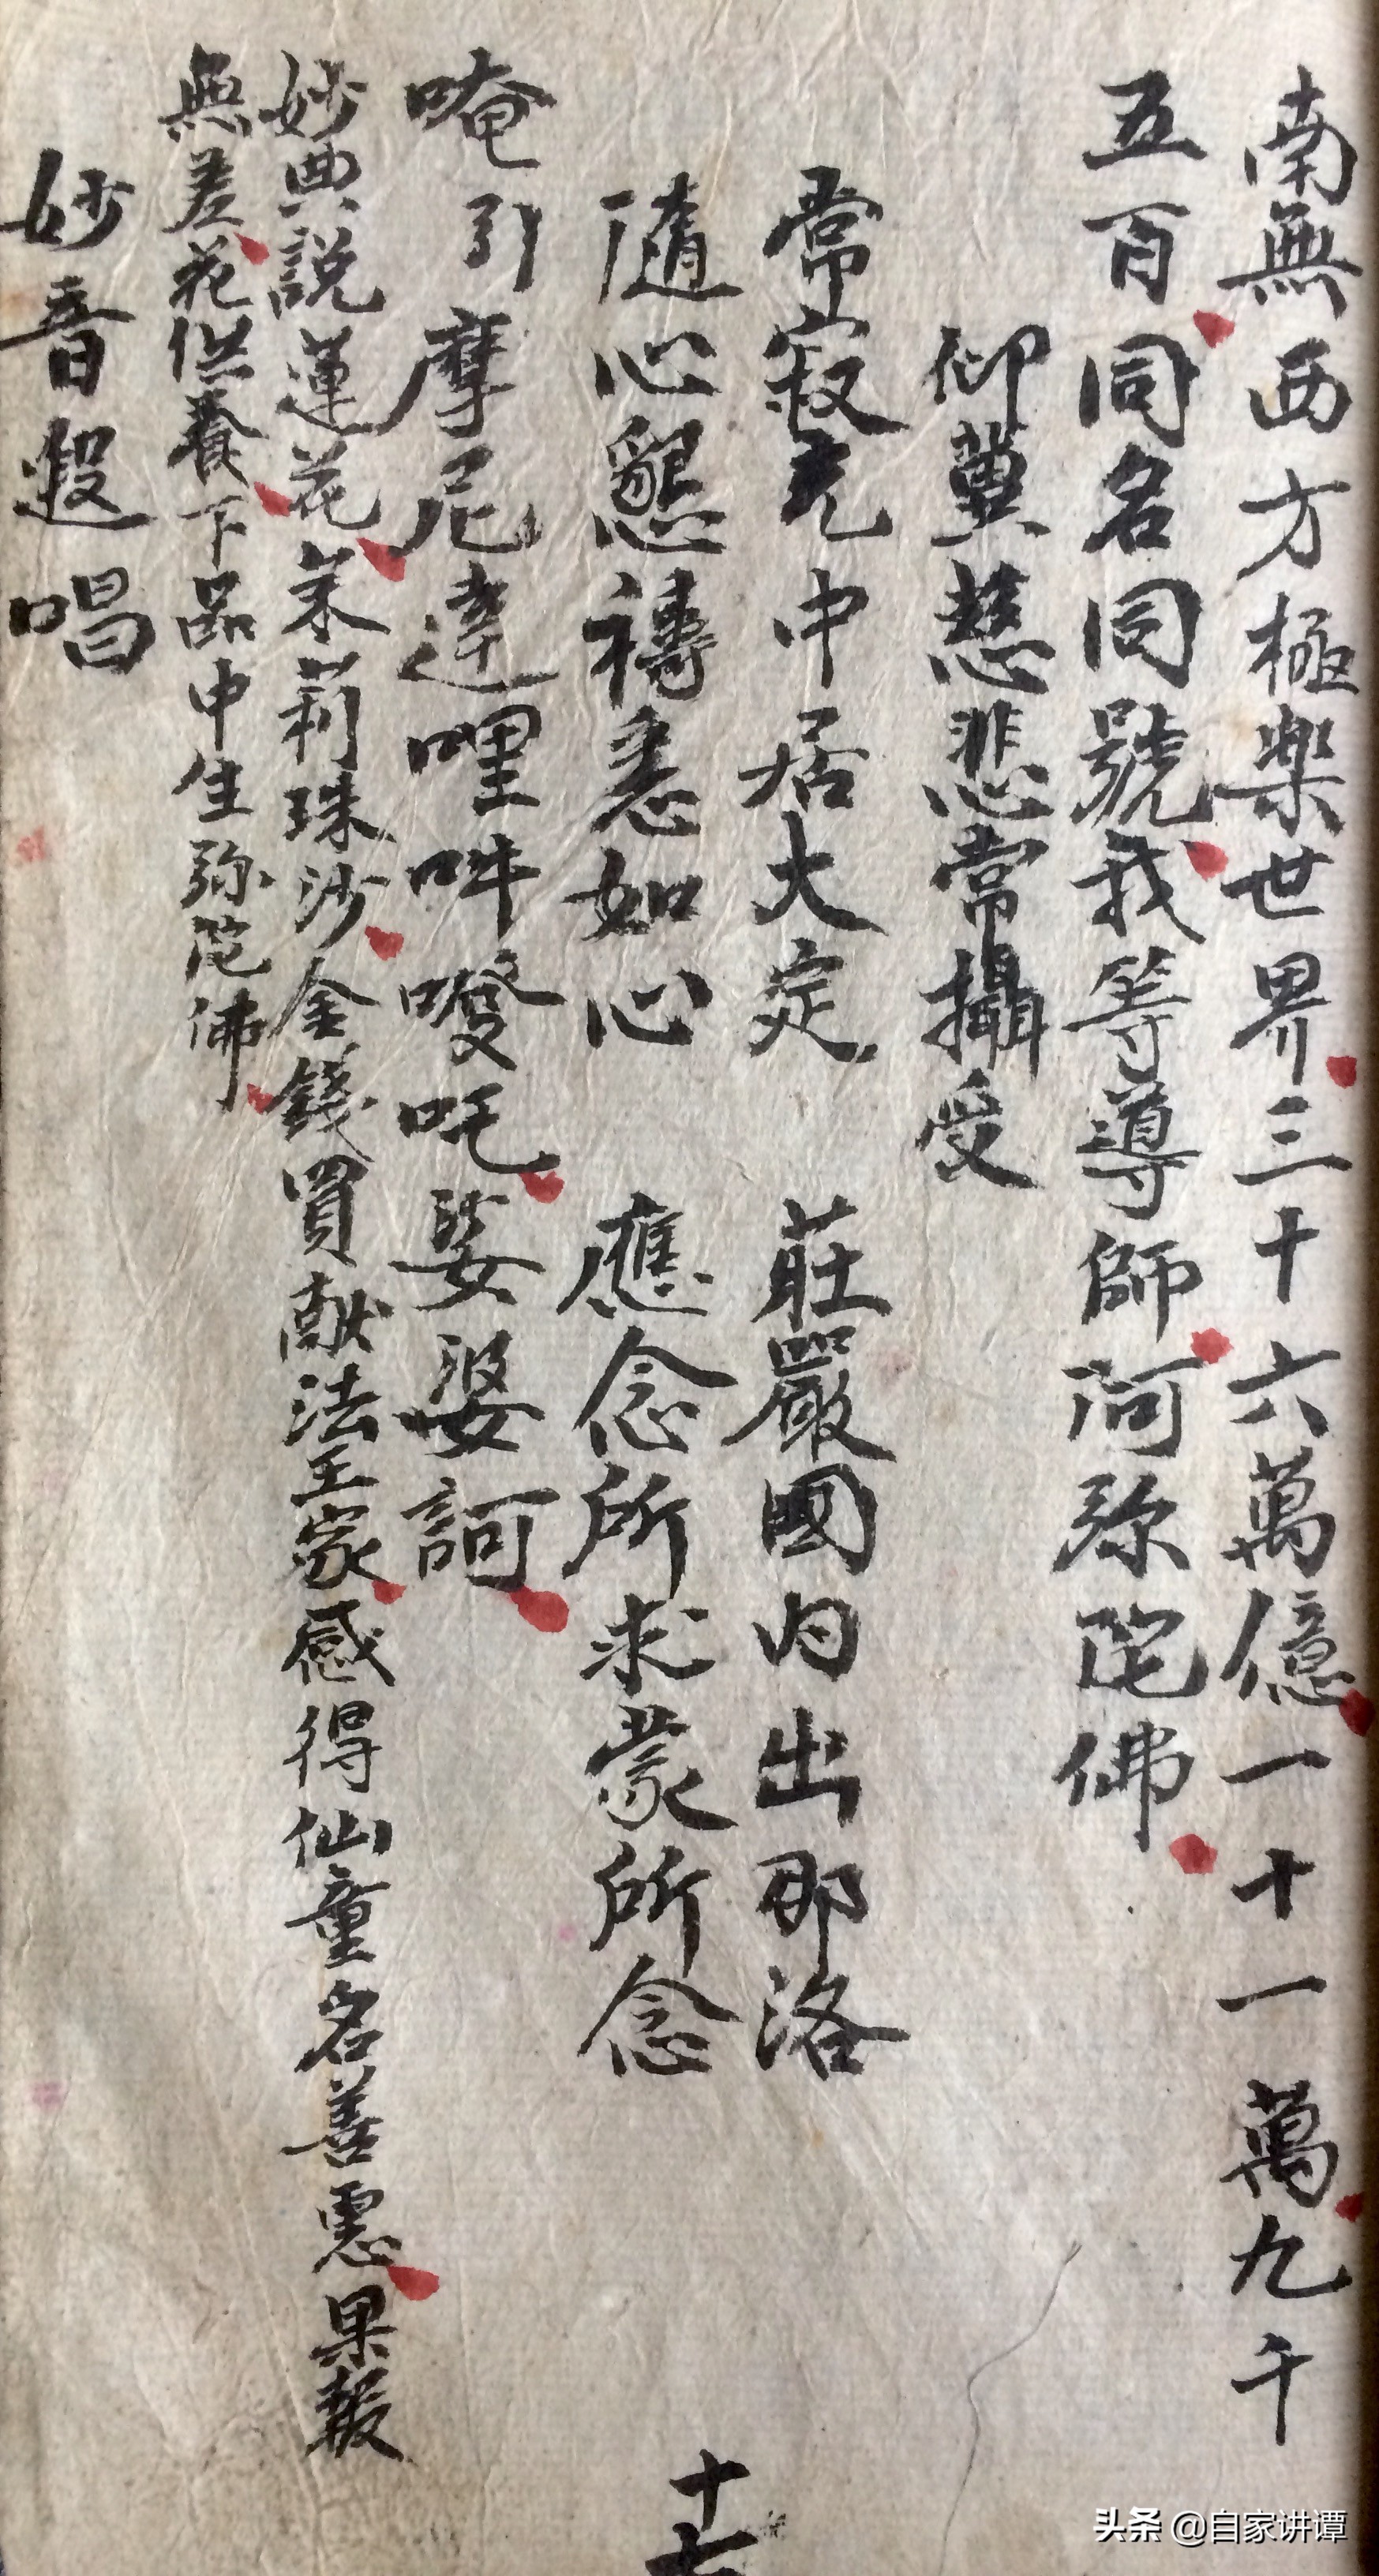 南無西方極楽世界三十六萬億一十一萬九千
五百同名同號我等導師阿弥陀佛
仰冀慈悲常攝受
常寂光中居大定 莊嚴國内出那洛
隨心懇禱悉如心 應念所求蒙所念
唵引摩尼達哩吽癹吒娑婆訶
妙典説蓮花茉莉珠沙金錢買献法王家感得仙童名善惠果報
無差花供養下品中生弥陀佛
妙音遐唱
十七
头条 @自家讲谭